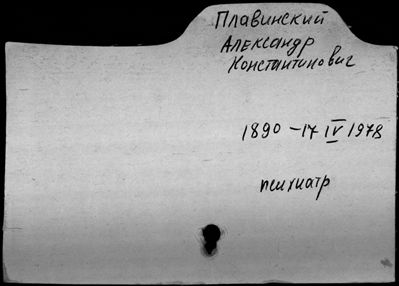 Плавинский
Александр
Константинович
1890 – 17 IV 1978
психиатр